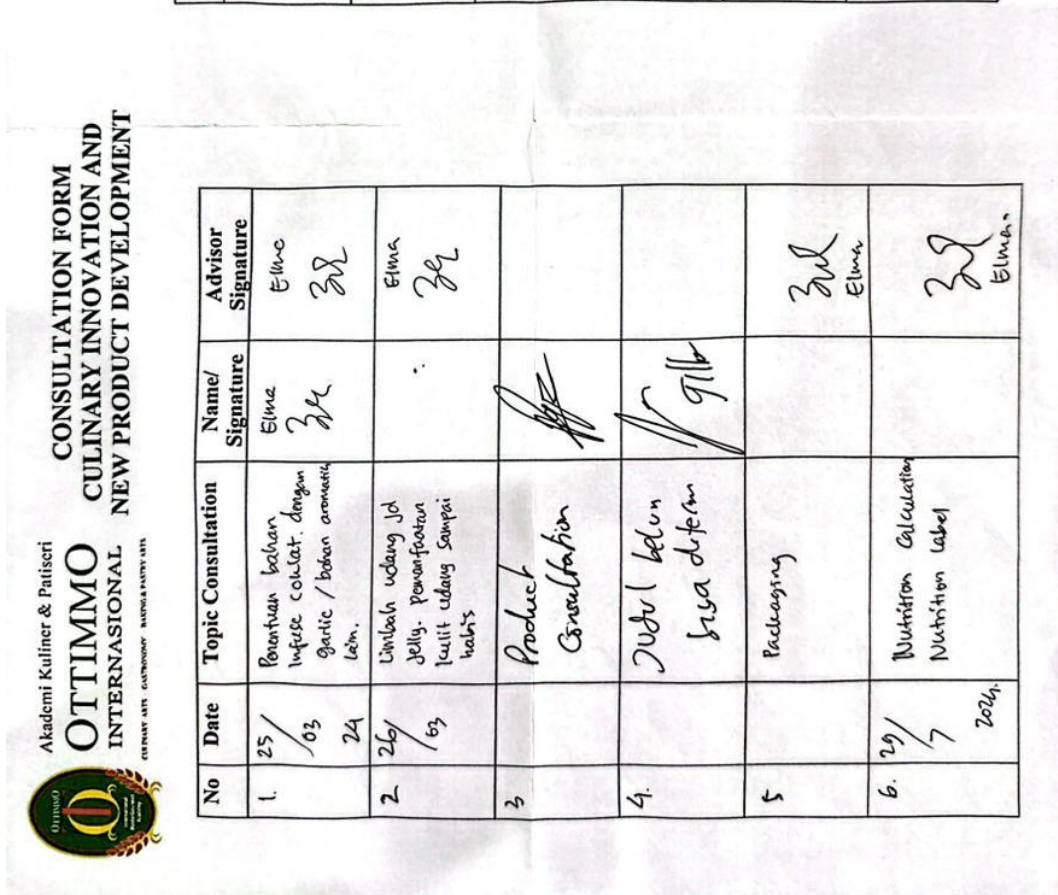 Akademi Kuliner & Patiseri
OTTIMMO
INTERNASIONAL
CONSULTATION FORM
CULINARY INNOVATION AND
NEW PRODUCT DEVELOPMENT
No Date Topic Consultation Name/ Signature Advisor Signature
1. 25/03 24
Penentuan bahan
Infuse coklat. dengan
garlic / bahan aromatic
lain.
Elma
Elma
2 26/03
Limbah udang jd
Jelly. Pemanfaatan
kulit udang sampai
habis
Elma
3 Product
Consultation
4. Judul belum
bisa diterima
5 Packaging
Elma
6. 29/7 2024.
Nutrition Calculation
Nutrition Label
Elma.